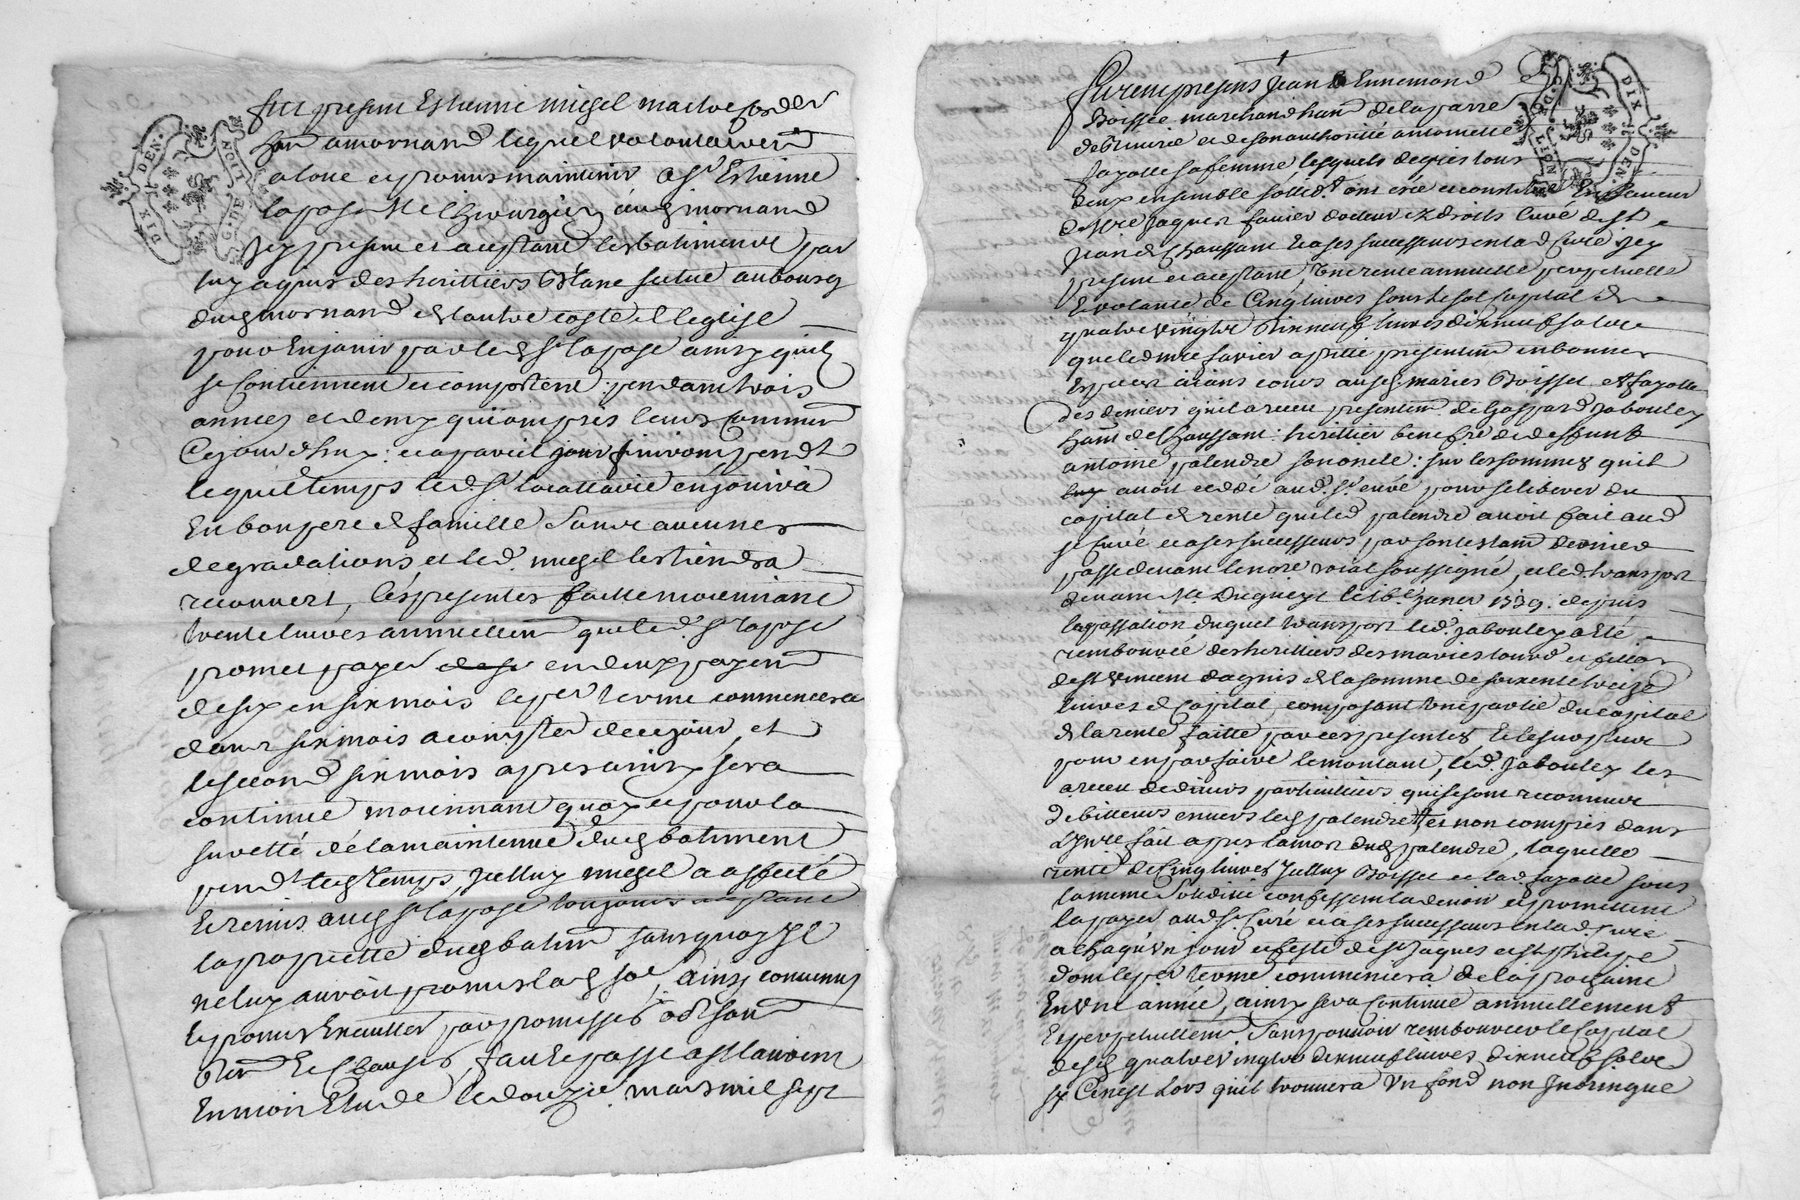 fut present Estienne miegel maitre
a mornand lequel volontairem
a loué et promis maintenir a Sr Estienne
lapose Me Chirurgien dud mornand
Jcy present et aceptant les batiments par
luy aquis des heritiers Blanc scitué au bourg
dud mornand de lautre costé de leglise
pour En jouir par led Sr lapose ainsy quils
se Contiennent et comportent pendant trois
années et demy qui ont pris leurs commen
Ce jourdhuy et a pareil jour finiront pendt
lequel temps led. Sr locattaire en jouira
En bon pere de famille sans aucunes
degradations et led. miegel les tiendra
recouvert, les presentes faitte moiennant
trente livres annuellem que led. Sr lapose
promet payer en deux payem
de six en six mois le per terme commencera
dans six mois a compter de ce jour, et
le second six mois apres ainsy sera
continué moiennant quoy et pour la
suretté de la maintenue dud batiment
pendt led temps, Jcelluy miegel a affecté
Et remis aud Sr lapose toujours aceptant
la proprietté dud batim sans quoy Jl
ne luy auroit promis lad soe, ainsy convenus
Et promis Executter par promesses
Et Clauses, fait et passé a St laurent
En mon Etude le douzie mars mil sept
Furent presens Jean Ennemond
Boissee marchand han de la parre
et de son authorité antoinette
fayolle sa femme lesquels de gré tous
deux ensemble sollidt ont créé et constitué En faveur
de Mre Jaques favier docteur ez droits Curé de St
Jean de Chaussant Et a ses successeurs en lad Cure Jcy
present et aceptant, Une rente annuelle perpetuelle
Et volante de Cinq livres sous le sol Capital de
quatre vingts Dix neuf livres dix neuf sols
que led mre favier a presentem en bonnes
Especes aians cours auxd maries Boissee et fayolle
des deniers quil a receu presentem de Gaspard Jabouley
hant de Chaussant heritier benefre de deffunt
antoine palendre son oncle: sur les sommes quil
luy avoit cedé aud. Sr curé pour se liberer du
capital de rente que led palendre avoit fait aud
sr Curé et a ses successeurs par son testam dernier
passé devant le nore roial soussigné, et led. transport
devant Me Dugueyt le 16e Janer 1739. depuis
la passation duquel transport led. Jabouley a Eté
rembourcé des heritiers des maries
de St vincent dagnis de la somme de soixente treize
livres de Capital, composant Une partie du capital
de la rente faitte par ces presentes Et le surplus
pour en parfaire le montant, led. Jaboulley les
a receu de divers particuliers qui se sont reconnus
debitteurs envers led palendre et non compris dans
fait apres la mort dud palendre, laquelle
rente de Cinq livres Jcelluy Boissee et lad. fayolle sous
la meme solidité confessent la devoir et promettent
la payer aud. Sr Curé et a ses successeurs en lad. Cure
a Chaqu'Un jour et feste de St Jaques et St philipe
dont le per terme commencera de la prochaine
En Une année, ainsy sera Continué annuellement
Et perpetuellem. sans pouvoir rembourcer le Capital
desd quatre vingts dix neuf livres dix neuf sols
sy Ce n'est Lors quil trouvera Un fond non
DIX DEN.
G. DE LION
DIX DEN.